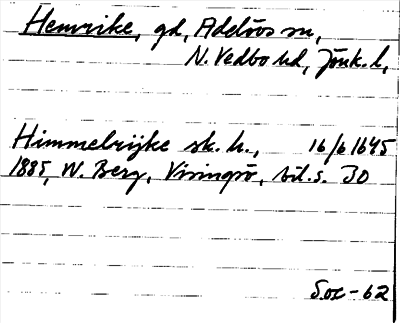 Hemrike, gd, Adelövs sn,
N. Vedbo hd, Jönk. l,
Himmelrijke sk. h., 16/6 1645
1885, W. Berg, Visingsö, bil. s. 30
Soc-62